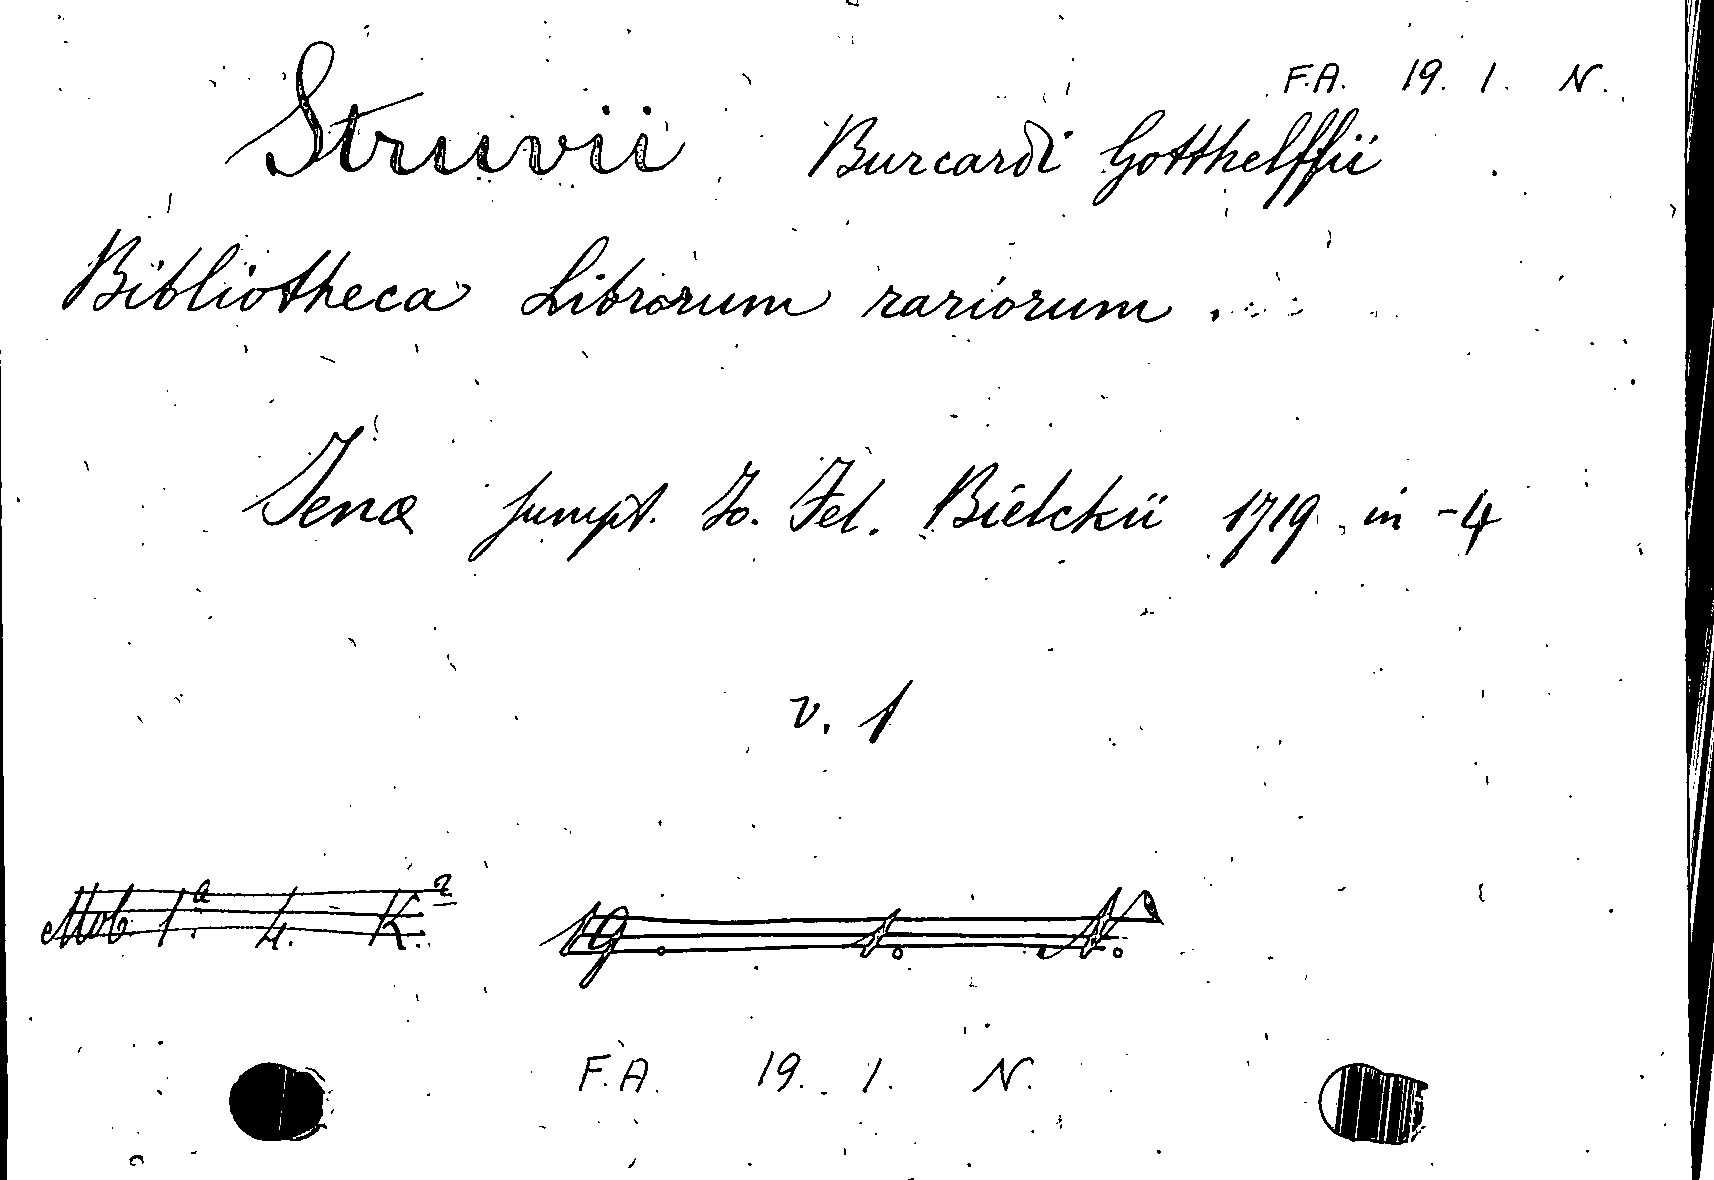 F.A. 19. 1. N.
Struvii Burcardi Gotthelffii
Bibliotheca Librorum rariorum.
Jenæ sumpt. Jo. Fel. Bielckii 1719 in -4
v. 1
Mob. 1.a 4. K.a 19. 1. N.
F.A. 19. 1. N.